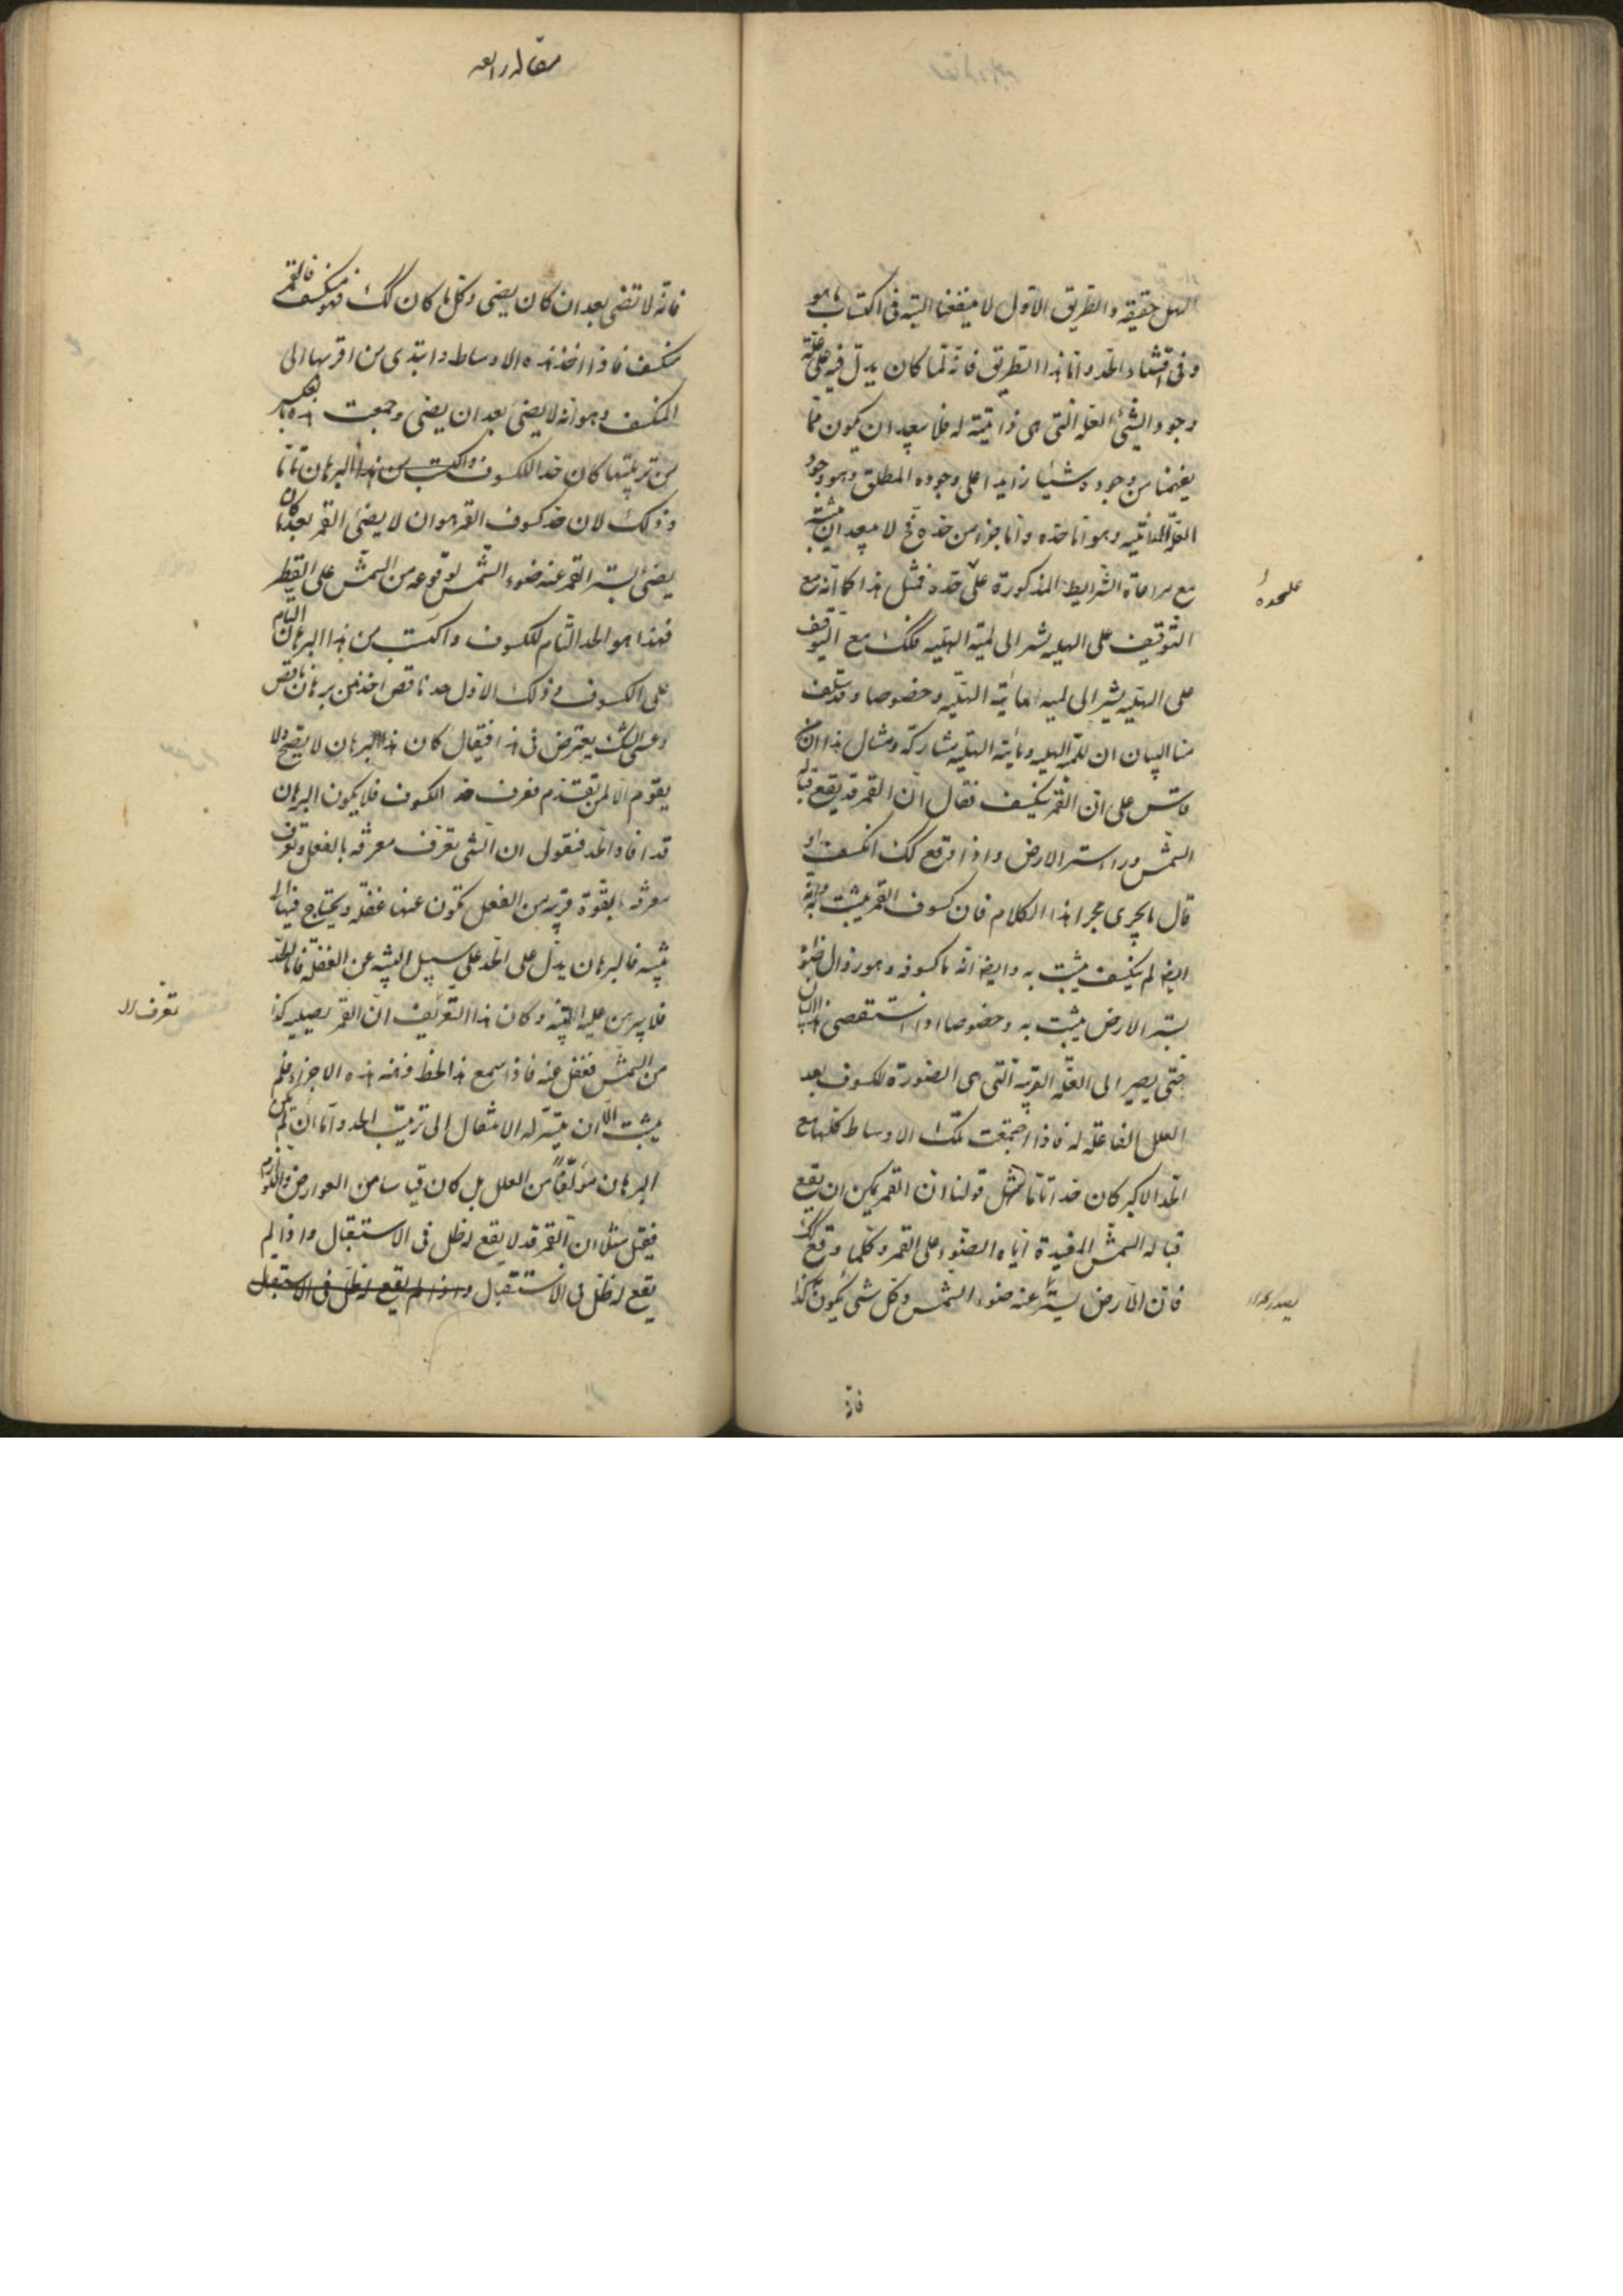 الهل حقيقه والطريق الاول لا ينفعنا البته فى اكتساب ما هو
وفى اقتناء الحد واما هذا الطريق فانه لما كان يدل فيه على علة
وجود الشئ العله التى هى ذاتية له فلا يبعد ان يكون مما
يفهمنا من وجوده شيئا زايدا على وجوده المطلق وهو وجود
العلة الذاتيه وهو اما حده واما جزء من حده فح لا يبعد ان ينبه
مع مراعاة الشرايط المذكورة على حده فمثل هذا كما انه مع
علىحده
التوقيف على الهليه يشير الى لمية الهليه فكك مع التوقيف
على الهليه يشير الى لميه مائية الهليه وخصوصا وقد سلف
منا البيان ان للمية الهليه ومائية الهليه مشاركة ومثال هذا ان من
قاس على ان القمر ينكسف فقال ان القمر قد يقع قبالة
الشمس وراء ستر الارض واذا وقع كك انكسف او
قال ما يجرى مجرا هذا الكلام فان كسوف القمر يثبت به وانه
ايضا لم ينكسف يثبت به وايضا انه ما كسوفه وهو زوال ضوئه
بستر الارض يثبت به وخصوصا اذا استقصى هذا البيان
حتى يصير الى العلة القريبه التى هى الصورة للكسوف بعد
العلل الفاعله له فاذا اجتمعت تلك الاوساط كلها مع
الحد الاكبر كان حدا تاما مثل قولنا ان القمر يمكن ان يقع
قبالة الشمس المفيدة اياه الضوء على القمر وكلما وقع كك
فان الارض يستر عنه ضوء الشمس وكل شئ يكون كذا
فانه
مقاله رابعه
فانه لا تضى بعد ان كان يضى وكل ما كان كك فهو منكسف فالقمر
منكسف فاذا اخذ هذه الاوساط وابتدى من اقربها الى
المنكسف وهو انه لا يضئ بعد ان يضى وجمعت هذه بالعكس
من تربيتها كان حد الكسوف واكتسب من هذا البرهان تاما
وذلك لان حد كسوف القمر هو ان لا يضئ القمر بعد ما كان
يضئ لستر القمر عنه ضوء الشمس لوقوعه من الشمس على القطر
فهذا هو الحد التام للكسوف واكتسب من هذا البرهان التام
على الكسوف وذلك الاول حد ناقص اخذ من برهان ناقص
وعسى الشك يعترض فى هذا فيقال كان هذا البرهان لا يصح ولا
يقوم الا لمن تقدم فعرف حد الكسوف فلا يكون البرهان
قد افاد الحد فنقول ان الشى تعرف معرفه بالفعل وتعرف
معرفه بالقوة قريبه من الفعل تكون عنها غفله ويحتاج فيها الى
تنبيه فالبرهان يدل على الحد على سبيل التنبيه عن الغفلة فاما الحد
فلا يبرهن عليه البته وكان هذا التعريف ان القمر يصيبه كذا
تعرف ان
من الشمس فغفل عنه فاذا سمع هذا لحظ ذهنه هذه الاجزاء فلم
يلبث الا ان يتيسر له الانتقال الى ترتيب الحد واما ان لم يكن
البرهان مؤلفا من العلل بل كان قياسا من العوارض واللوازم
فيقبل مثلا ان القمر قد لا يقع له ظل فى الاستقبال واذا لم
يقع له ظل فى الاستقبال واذا لم يقع له ظل فى الاستقبال